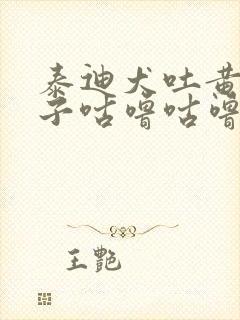 泰迪犬吐黄
子咕噜咕噜
王艷